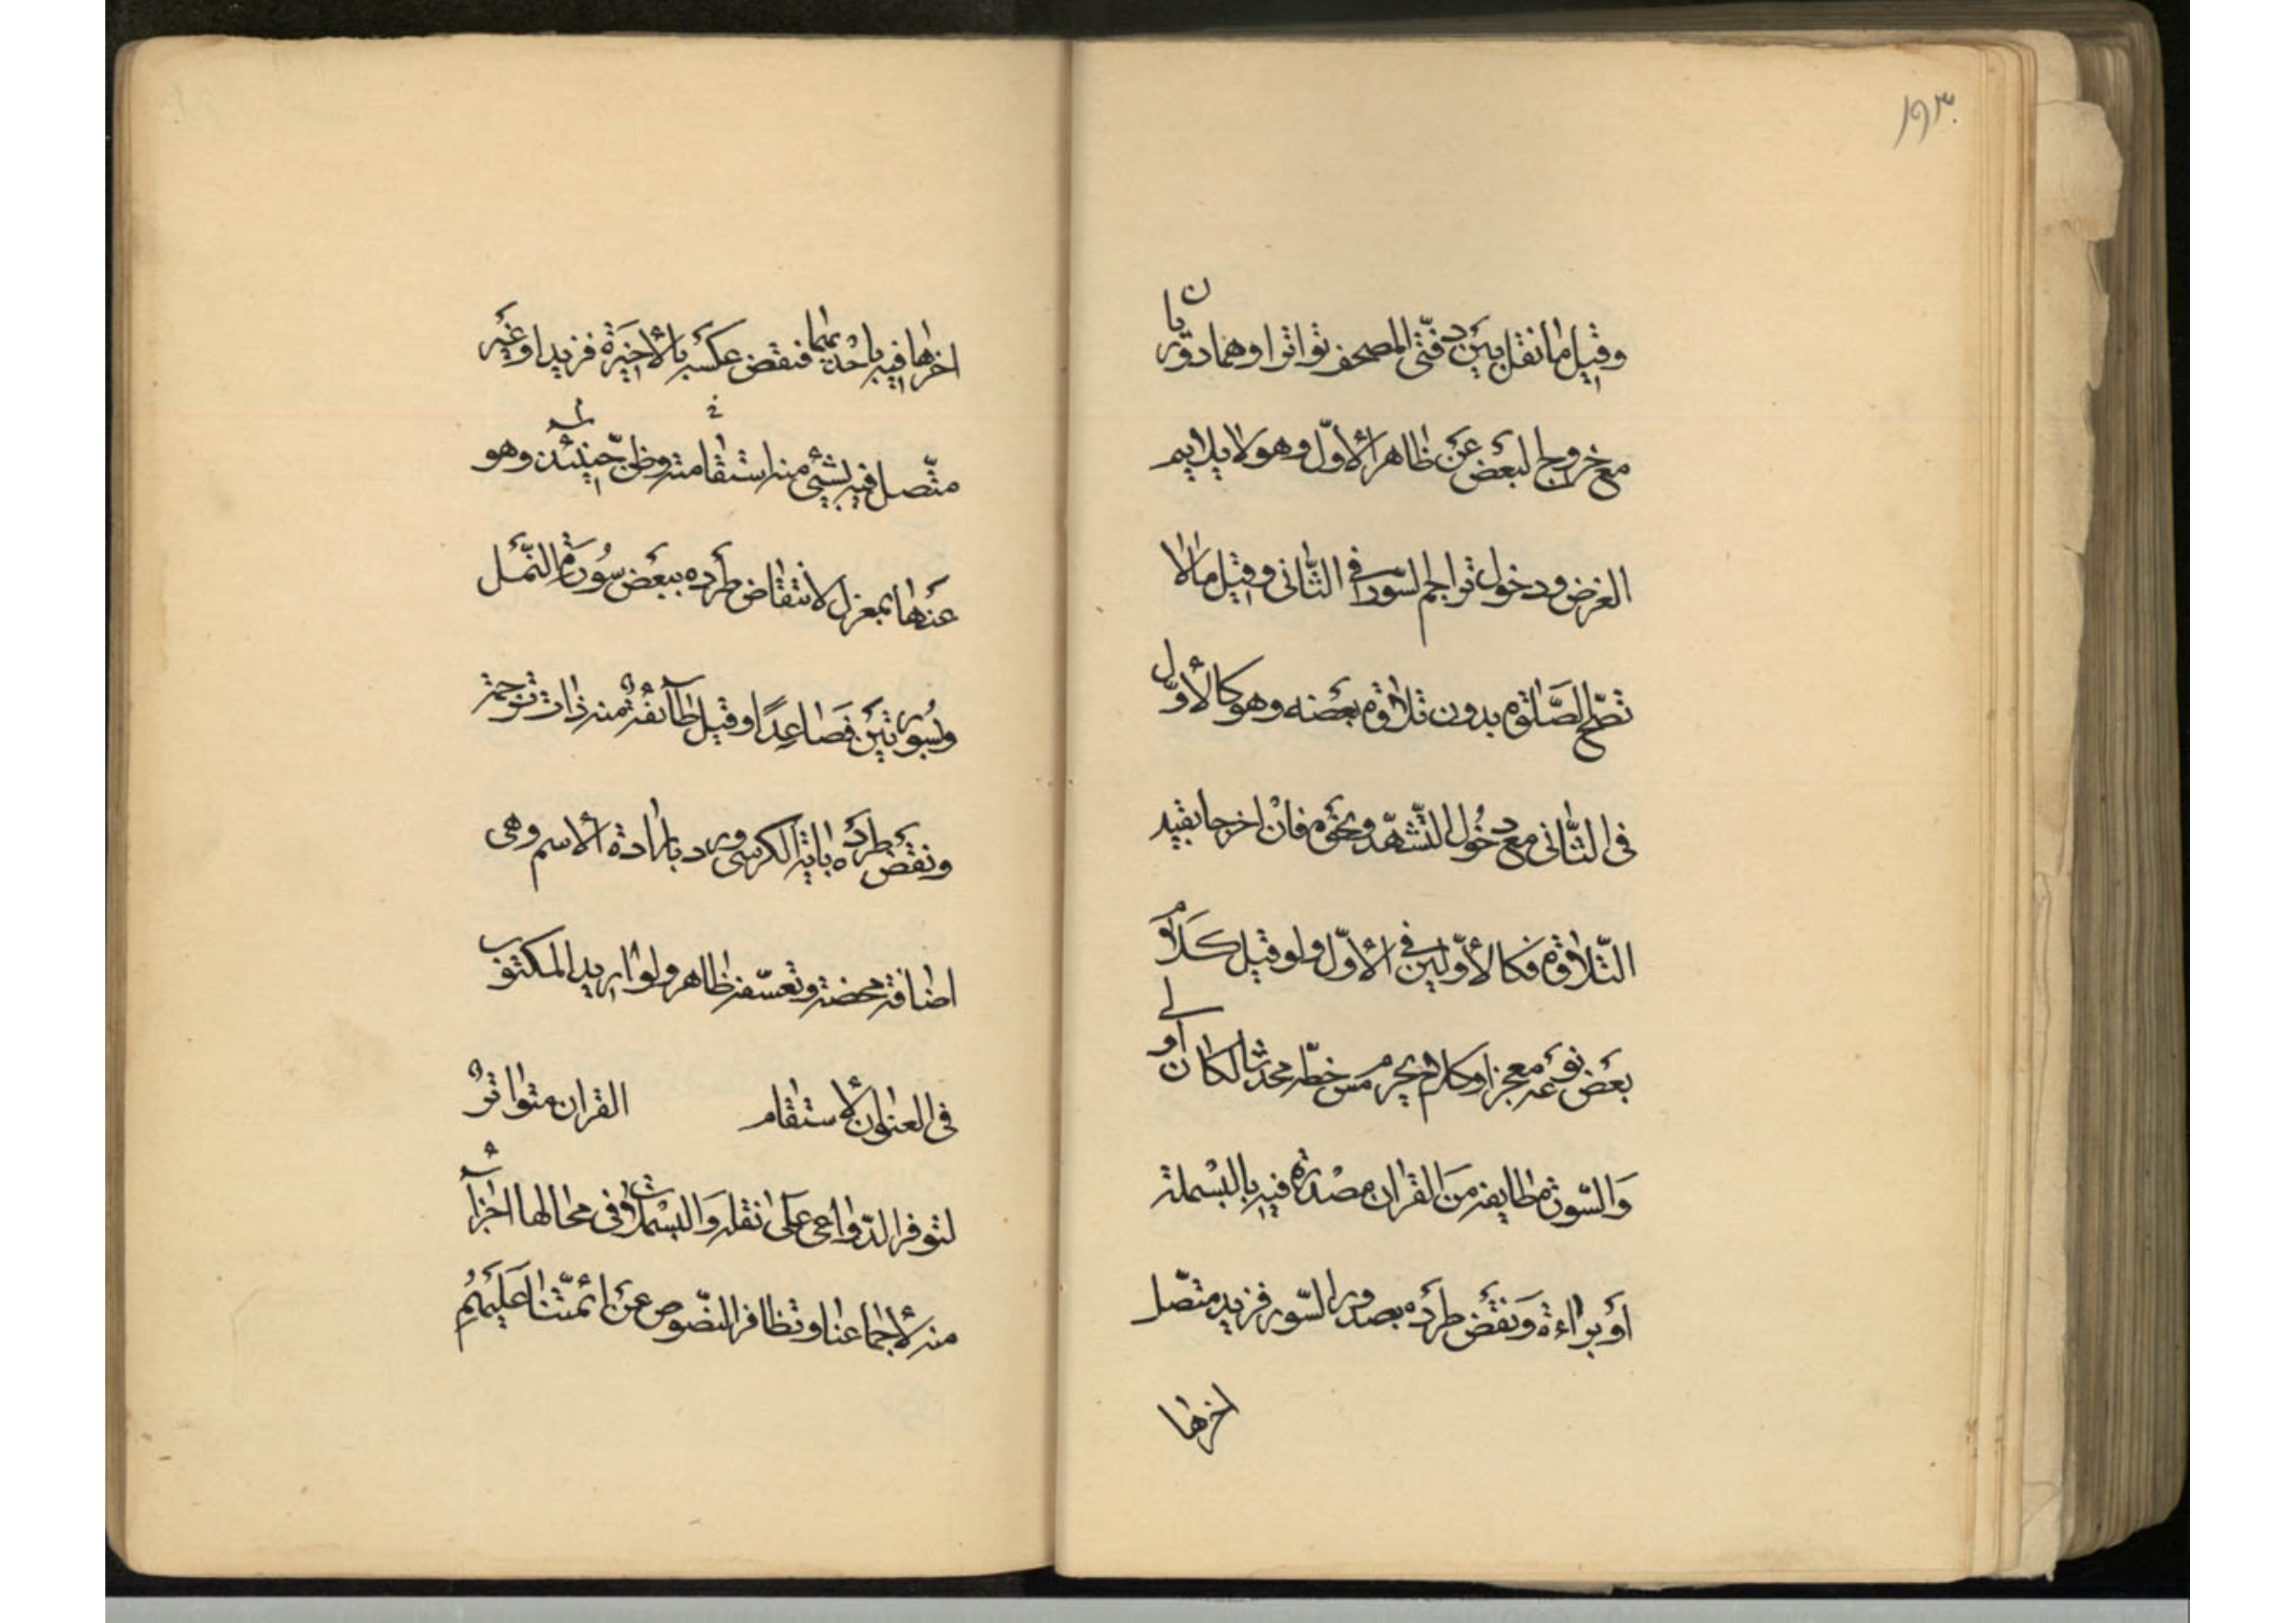 ١٩٣
وقيل ما نقل بين دفّتي المصحف تواترا وهما دوّريان
مع خروج البعض عن ظاهر الأوّل وهو لا يلايم
الغرض ودخول تراجم السّور في الثّاني وقيل ما لا
تصّح الصّلوة بدون تلاوة بعضه وهو كالأوّل
في الثّاني مع دخُول التّشهّد ونحوه فان اخرجا بقيد
التّلاوة فكالأوّلين في الأوّل ولو قيل كَلاَمٌ
بعض نوعه معجز او كلام يحرم مسّ خطّه محدثا لكان أولى
وَالسّورة طايفة من القران مصْدرة فيه بالبسْملة
أو براءة وَنقْض طرْده بصدور السّور فزيد متّصل
اخرها
اخرها فيه باحْديهما فنقض عكسه بالأخيرة فزيد او غيْر
متّصل فيه بشيْ منه استقامته وظنّي حينئذٍ وهو
عنها بمعزل لانتقاض طرْده ببعْض سُورة النّمل
وسُورتيْن فصَاعِدًا وقيل طآئفةٌ منه ذات ترجمة
ونقض طرْده باية الكرسي ورد بارادة الأسم وهي
اضافة محضة وتعسّفه ظاهر ولو اريد المكتوب
في العنوان لأستقام القران متواترٌ
لتوفر الدّواعي عَلى نقله وَالبسْملات في محالها اجزآء
منه لأجماعنا وتظافر النّصوص عنْ ائمّتنا عَليْهمُ